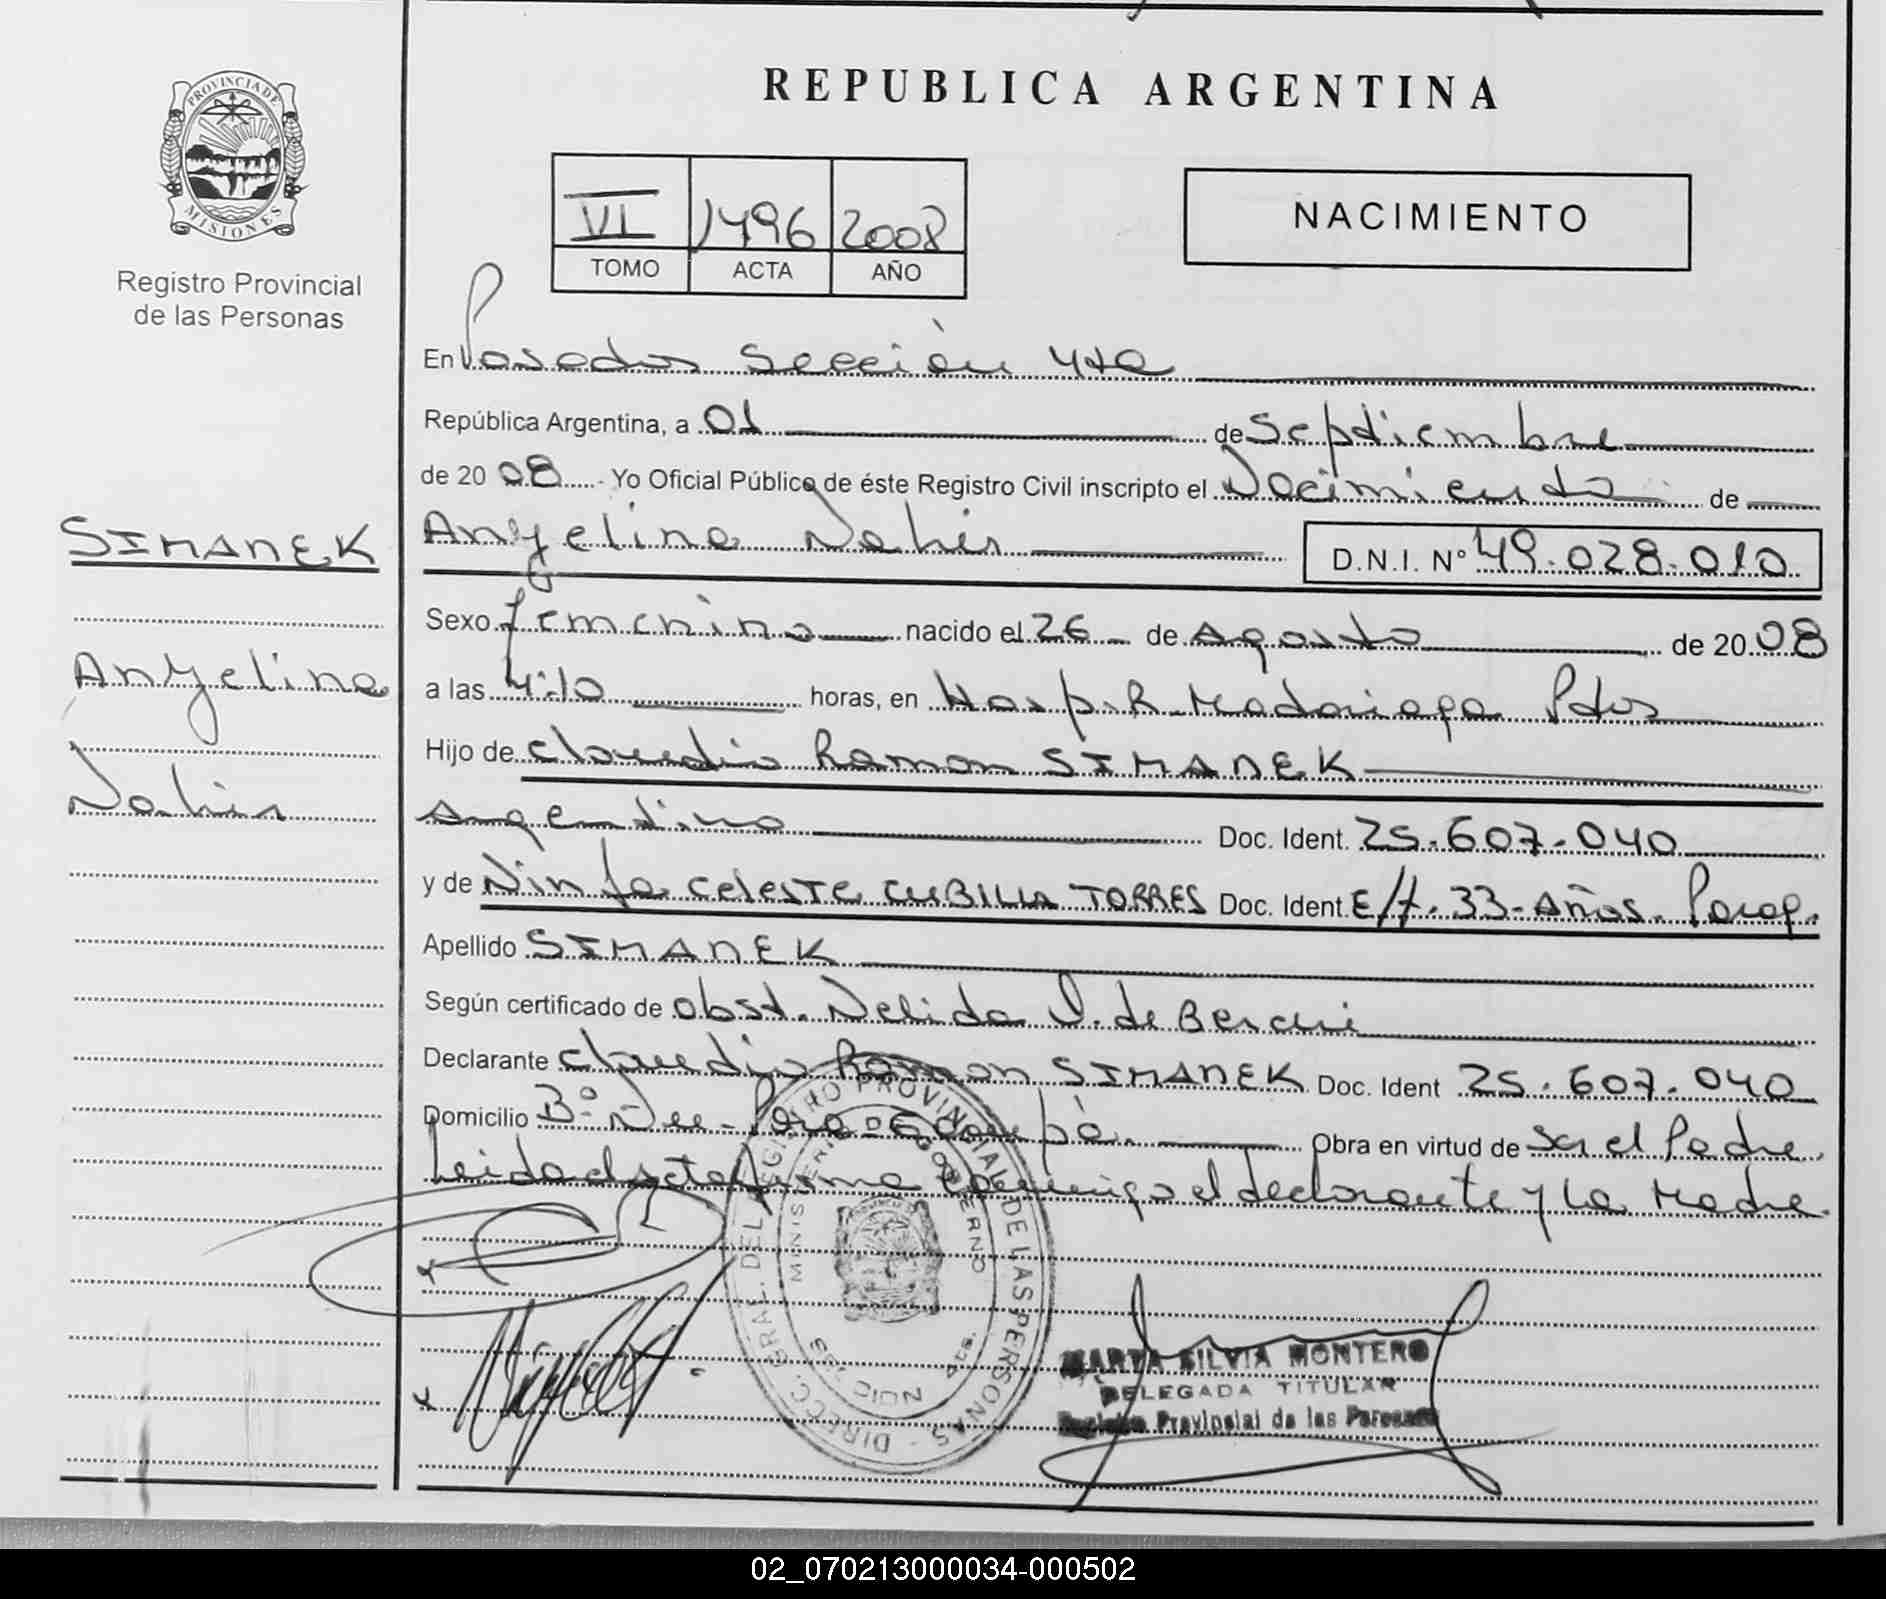 PROVINCIA DE
MISIONES
Registro Provincial
de las Personas
SIMANEK
Anyelina
Nahir
REPUBLICA ARGENTINA
VI 1496 2008
TOMO ACTA AÑO
NACIMIENTO
En Posadas Sección 4ta
República Argentina, a 01 de Septiembre
de 2008 - Yo Oficial Público de éste Registro Civil inscripto el Nacimiento de
Anyelina Nahir D.N.I. Nº 49.028.010
Sexo femenino nacido el 26 de Agosto de 2008
a las 4:10 horas, en Hosp. R. Madariaga Pdas
Hijo de Claudio Ramon SIMANEK
Argentino Doc. Ident. 25.607.040
y de Ninfa Celeste CUBILLA TORRES Doc. Ident. E/t. 33-Años. Parag.
Apellido SIMANEK
Según certificado de obst. Nelida de
Declarante Claudio Ramon SIMANEK Doc. Ident 25.607.040
Domicilio Bº Obra en virtud de ser el Padre.
Leida el acta firma conmigo el declarante y la Madre.
DIRECC. GRAL. DEL REGISTRO PROVINCIAL DE LAS PERSONAS
MINISTERIO GOBIERNO
MARTA SILVIA MONTERO
DELEGADA TITULAR
Registro Provincial de las Personas
02_070213000034-000502